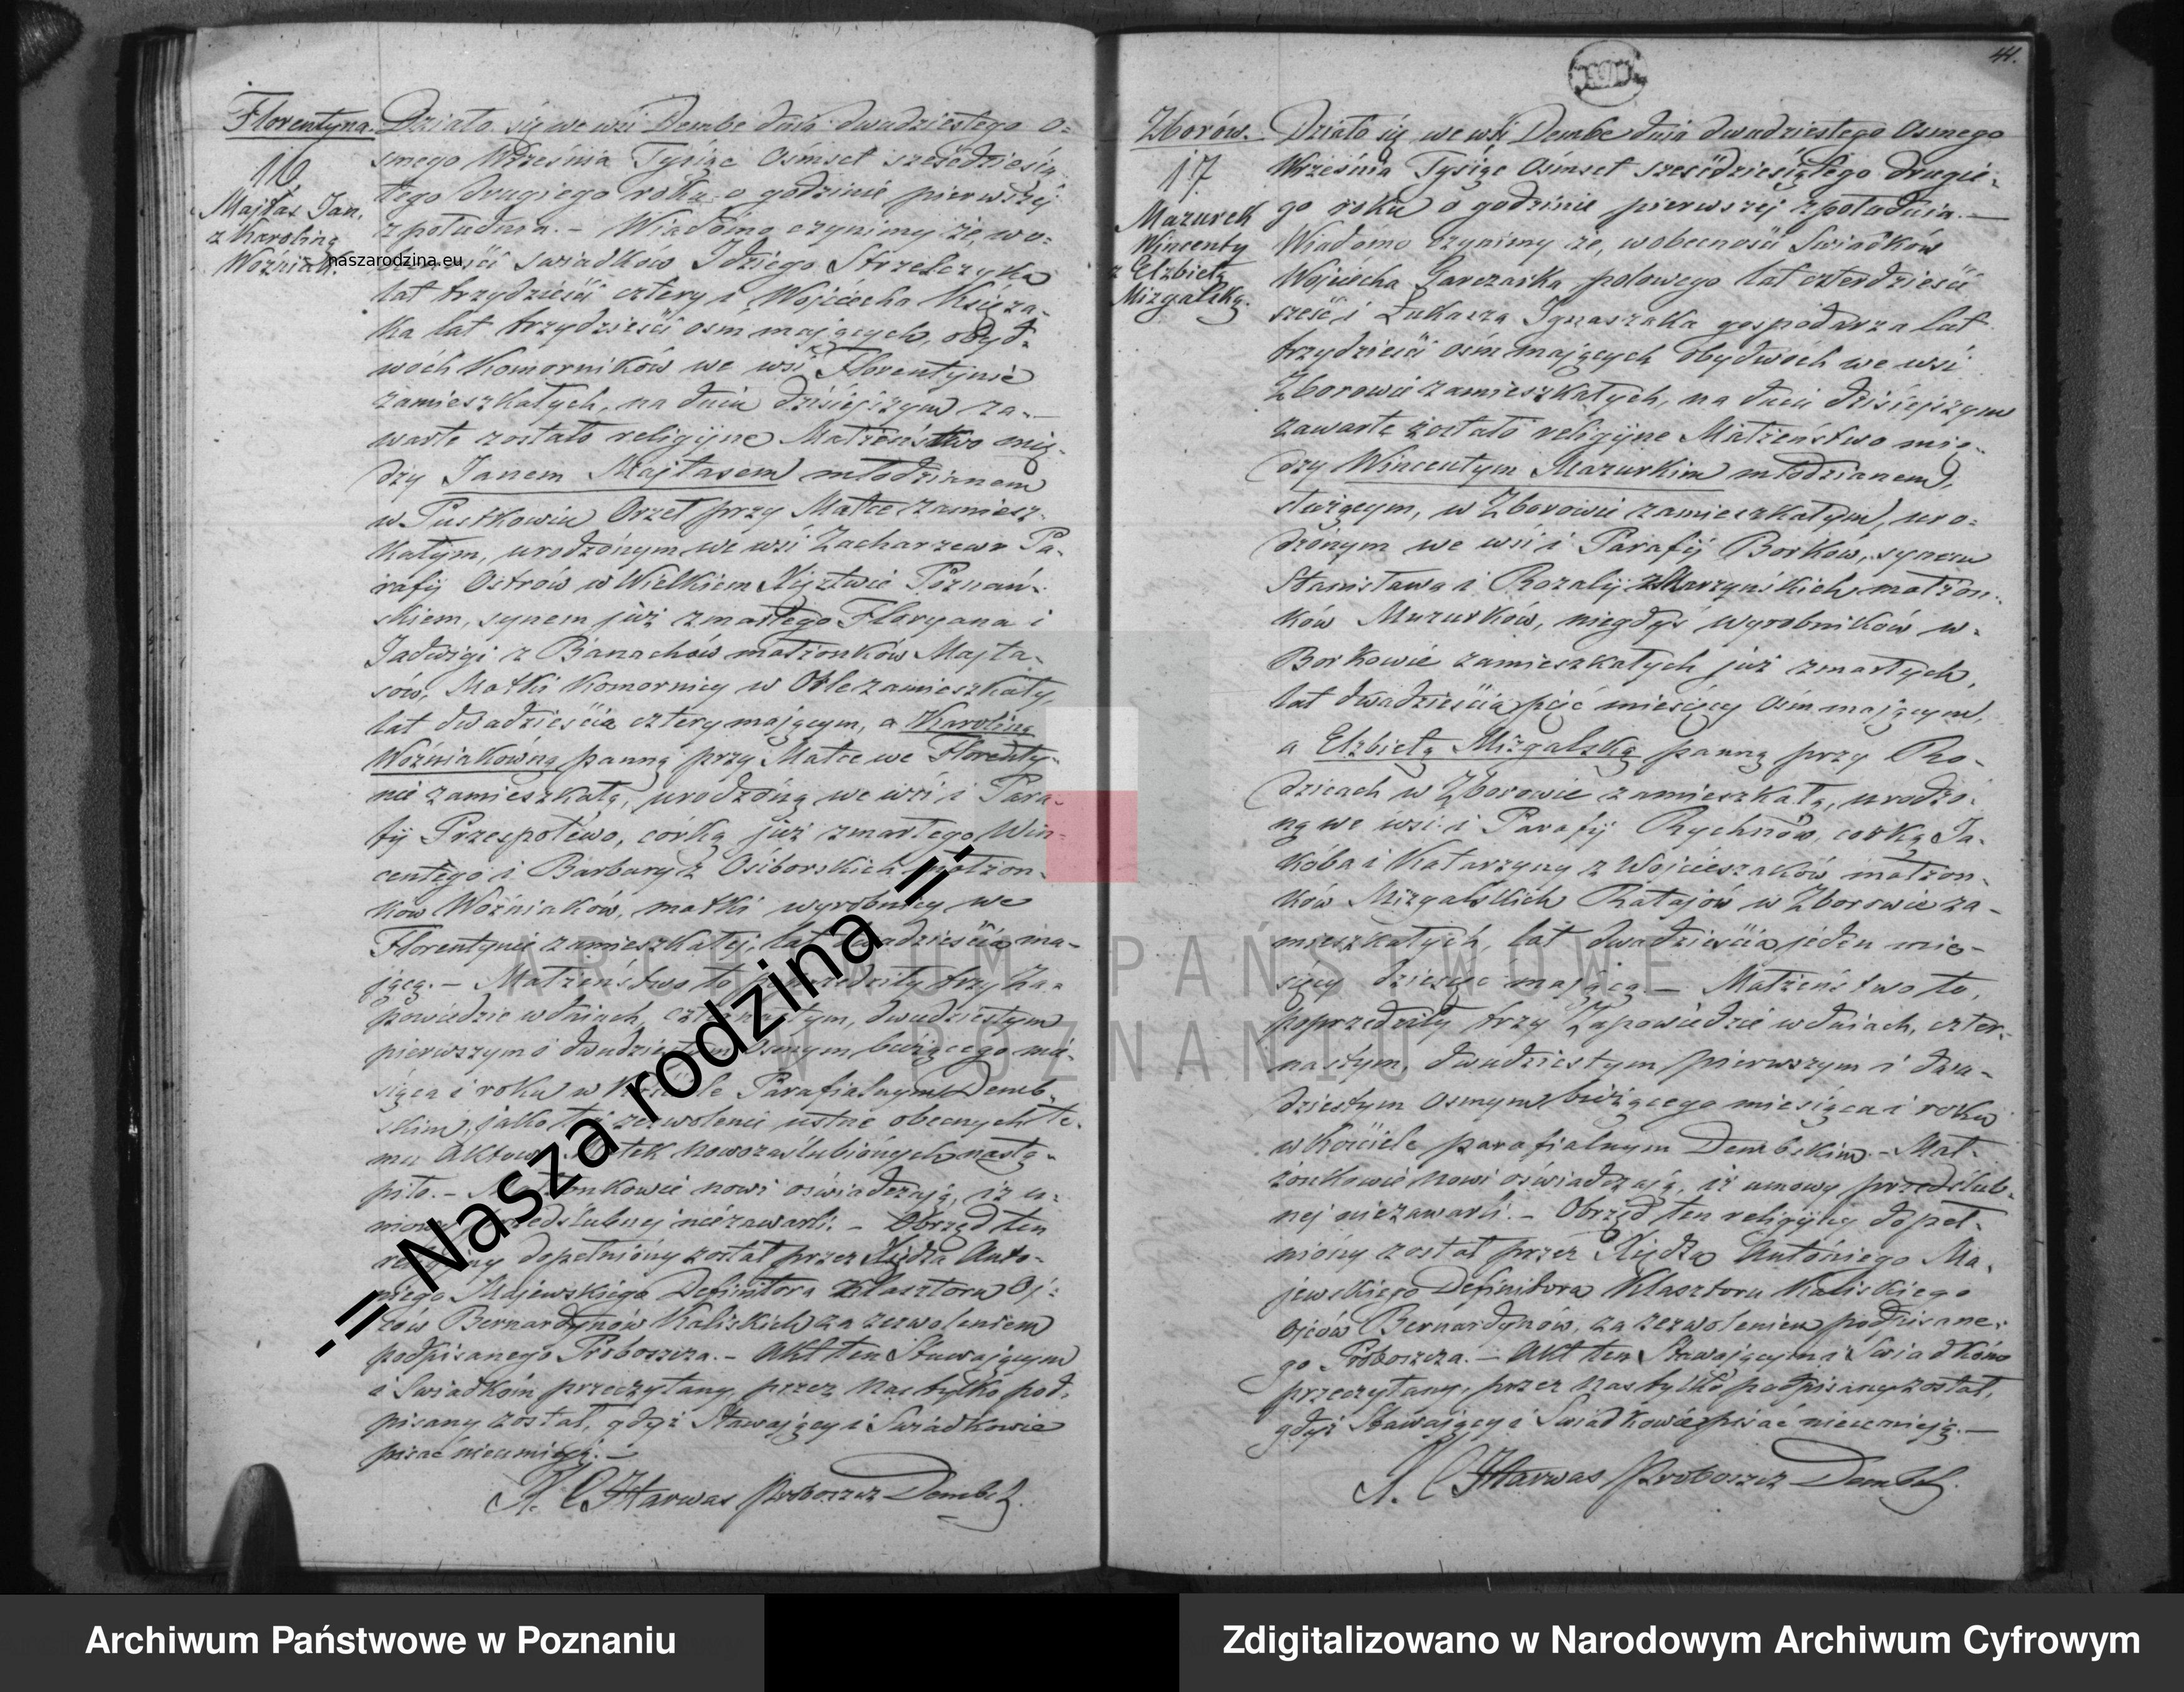 Florentyna.
16
Majtas Jan,
z Karoliną
Woźniak.
naszarodzina.eu
Działo się we wsi Dembe dnia dwudziestego o=
smego Września Tysiąc Ośmset sześćdziesią
tego drugiego roku o godzinie pierwszej
z południa. – Wiadomo czynimy że, wo=
Swiadków Idziego Strzelczyka
lat trzydzieści cztery i Wojciecha Księża-
ka lat trzydzieści ośm mających, obyd=
wóch Komorników we wsi Florentynie
zamieszkałych, na dniu dzisiejszym za-
warte zostało religijne Małżeństwo mię-
dzy Janem Majtasem młodzianem
w Pustkowiu Orzeł przy Matce zamiesz-
kałym, urodzonym we wsi Zacharzew Pa-
rafij Ostrów w Wielkiem Xięztwie Poznań-
skiem, synem już zmarłego Floryana i
Jadwigi z Banachów małżonków Majta-
sów, Matki Komornicy w zamieszkały,
lat dwadzieścia cztery mającym, a Karoliną
Woźniakówną panną przy Matce we Florenty-
nie zamieszkałą, urodzoną we wsi i Para-
fij Przespolewo, córką już zmarłego Win-
centego i Barbary z Osiborskich małżon-
ków Woźniaków, matki wyrobnicy we
Florentynie zamieszkałej, lat dwadzieścia ma-
jącą. – Małżeństwo to poprzedziły trzy Za=
powiedzie w dniach, czternastym, dwudziestym
pierwszym i dwudziestym Osmym bieżącego mie-
siąca i roku w Kościele Parafialnym Demb-
skim, jako też zezwolenie ustne obecnych te-
mu Aktowi Matek Nowozaślubionych nastą-
piło. – Małżonkowie nowi oświadczają, iż u-
mowy przedślubnej niezawarli. – Obrzęd ten
religijny dopełniony został przez Xiędza Anto-
niego Majewskiego Definitora Klasztoru Oj-
ców Bernardynów Kaliskich za zezwoleniem
podpisanego Proboszcza. – Akt ten Stawającym
i Swiadkom przeczytany, przez Nas tylko pod-
pisany został, gdyż Stawający i Swiadkowie
pisać nieumieją. –
X. Harwas Proboszcz Dembski
44.
Zborów.
17.
Mazurek
Wincenty
z Elżbietą
Mizgalską.
Działo się we wsi Dembe dnia dwudziestego Osmego
Września Tysiąc Ośmset sześćdziesiątego drugie-
go roku o godzinie pierwszej z południa. –
Wiadomo czynimy że, wobecności Swiadków
Wojciecha Garczarka polowego lat czterdzieści
sześć i Łukasza Ignaszaka gospodarza lat
trzydzieści ośm mających obydwóch we wsi
Zborowie zamieszkałych, na dniu dzisiejszym
zawarte zostało religijne Małżeństwo mię-
dzy Wincentym Mazurkim młodzianem,
służącym, w Zborowie zamieszkałym, uro=
dzonym we wsi i Parafij Borków, synem
Stanisława i Rozalij z małżon-
ków Mazurków, niegdyś wyrobników w-
Borkowie zamieszkałych już zmarłych,
lat dwadzieścia pięć miesięcy Ośm mającym,
a Elżbietą Mizgalską panną przy Ro-
dzicach w Zborowie zamieszkałą, urodzo-
ną we wsi i Parafij Rychnów, córką Ja-
kóba i Katarzyny z Wojcieszaków małżon-
ków Mizgalskich Ratajów w Zborowie za-
mieszkałych, lat dwadzieścia jeden mie-
sięcy dziesięć mającą – Małżeństwo to,
poprzedziły trzy Zapowiedzie w dniach, czter-
nastym, dwudziestym pierwszym i dwu-
dziestym Osmym bieżącego miesiąca i roku
w Kościele parafialnym Dembskim. – Mał-
żonkowie Nowi oświadczają, iż umowy przedślub-
nej niezawarli. – Obrzęd ten religijny dopeł-
niony został przez Xiędza Antoniego Ma-
jewskiego Definitora Klasztoru Kaliskiego
Ojców Bernardynów, za zezwoleniem podpisane-
go Proboszcza. – Akt ten Stawającym i Swiadkom
przeczytany, przez Nas tylko podpisany został,
gdyż Stawający i Swiadkowie pisać nieumieją. –
X. Harwas Proboszcz Dembski
-= Nasza rodzina =-
ARCHIWUM PAŃSTWOWE
W POZNANIU
Archiwum Państwowe w Poznaniu
Zdigitalizowano w Narodowym Archiwum Cyfrowym